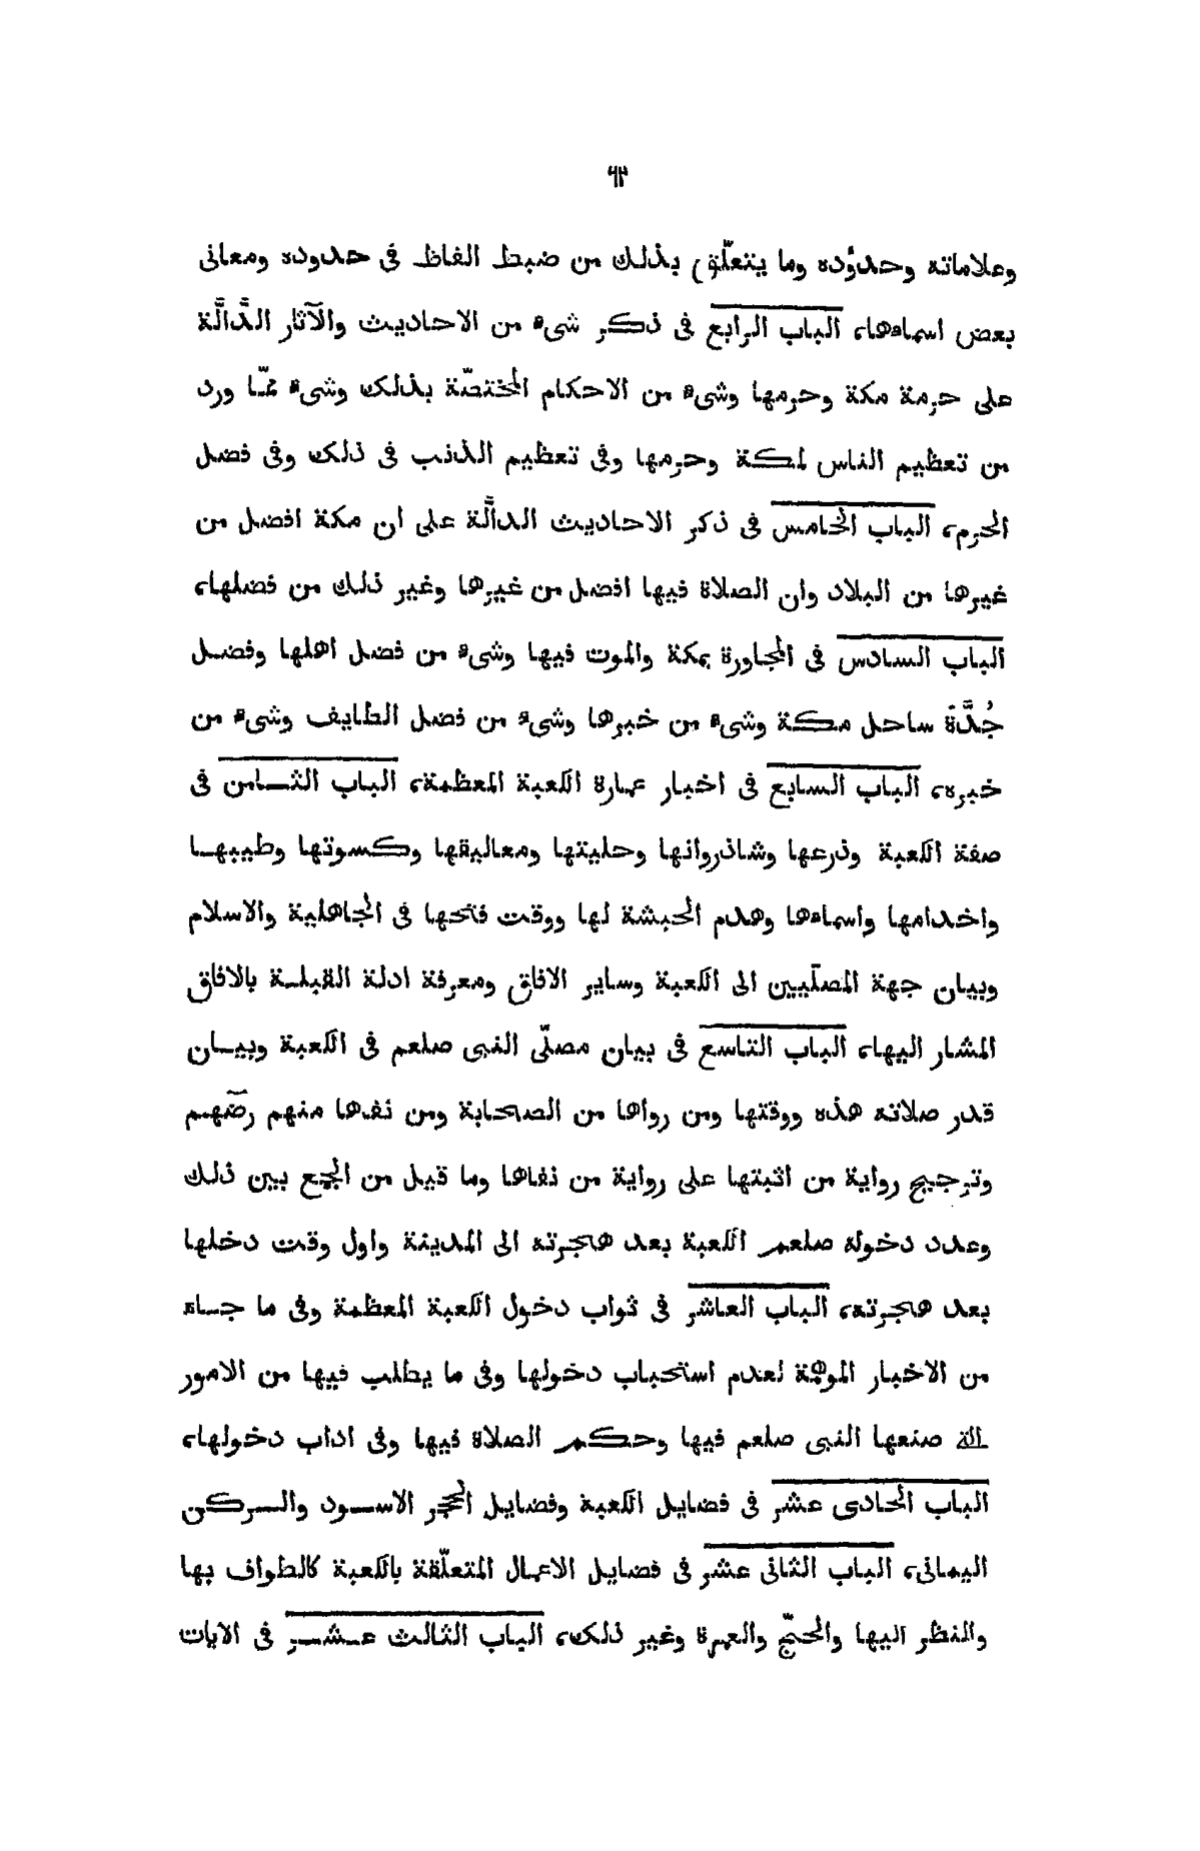 ٦٣
وعلاماته وحدوده وما يتعلّق بذلك من ضبط الفاظ فى حدوده ومعانى
بعض اسماءها، الباب الرابع فى ذكر شىء من الاحاديث والآثار الدَّالَّة
على حرمة مكة وحرمها وشىء من الاحكام المختصّة بذلك وشىء ممّا ورد
من تعظيم الناس لمكة وحرمها وفى تعظيم الذنب فى ذلك وفى فضل
الحرم، الباب الخامس فى ذكر الاحاديث الدالَّة على ان مكة افضل من
غيرها من البلاد وان الصلاة فيها افضل من غيرها وغير ذلك من فضلها،
الباب السادس فى المجاورة بمكة والموت فيها وشىء من فضل اهلها وفضل
جُدَّة ساحل مكة وشىء من خبرها وشىء من فضل الطايف وشىء من
خبره، الباب السابع فى اخبار عمارة الكعبة المعظمة، الباب الثامن فى
صفة الكعبة وذرعها وشاذروانها وحليتها ومعاليقها وكسوتها وطيبها
واخدامها واسماءها وهدم الحبشة لها ووقت فتحها فى الجاهلية والاسلام
وبيان جهة المصلّيين الى الكعبة وساير الافاق ومعرفة ادلة القبلة بالافاق
المشار اليها، الباب التاسع فى بيان مصلّى النبى صلعم فى الكعبة وبيان
قدر صلاته هذه ووقتها ومن رواها من الصحابة ومن نفها منهم رضّهم
وترجيح رواية من اثبتها على رواية من نفاها وما قيل من الجمع بين ذلك
وعدد دخوله صلعم الكعبة بعد هجرته الى المدينة واول وقت دخلها
بعد هجرته، الباب العاشر فى ثواب دخول الكعبة المعظمة وفى ما جاء
من الاخبار الموهمة لعدم استحباب دخولها وفى ما يطلب فيها من الامور
التى صنعها النبى صلعم فيها وحكم الصلاة فيها وفى اداب دخولها،
الباب الحادى عشر فى فضايل الكعبة وفضايل الحجر الاسود والركن
اليمانى، الباب الثانى عشر فى فضايل الاعمال المتعلّقة بالكعبة كالطواف بها
والنظر اليها والحجّ والعمرة وغير ذلك، الباب الثالث عشر فى الايات